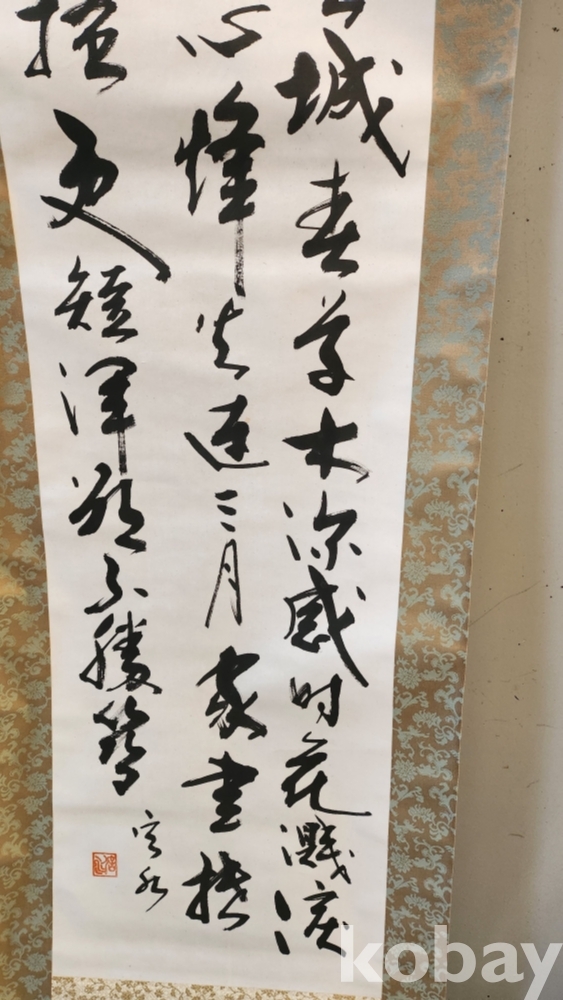 城春草木深感時花濺淚
心烽火連三月家書抵
搔更短渾欲不勝簪
kobay